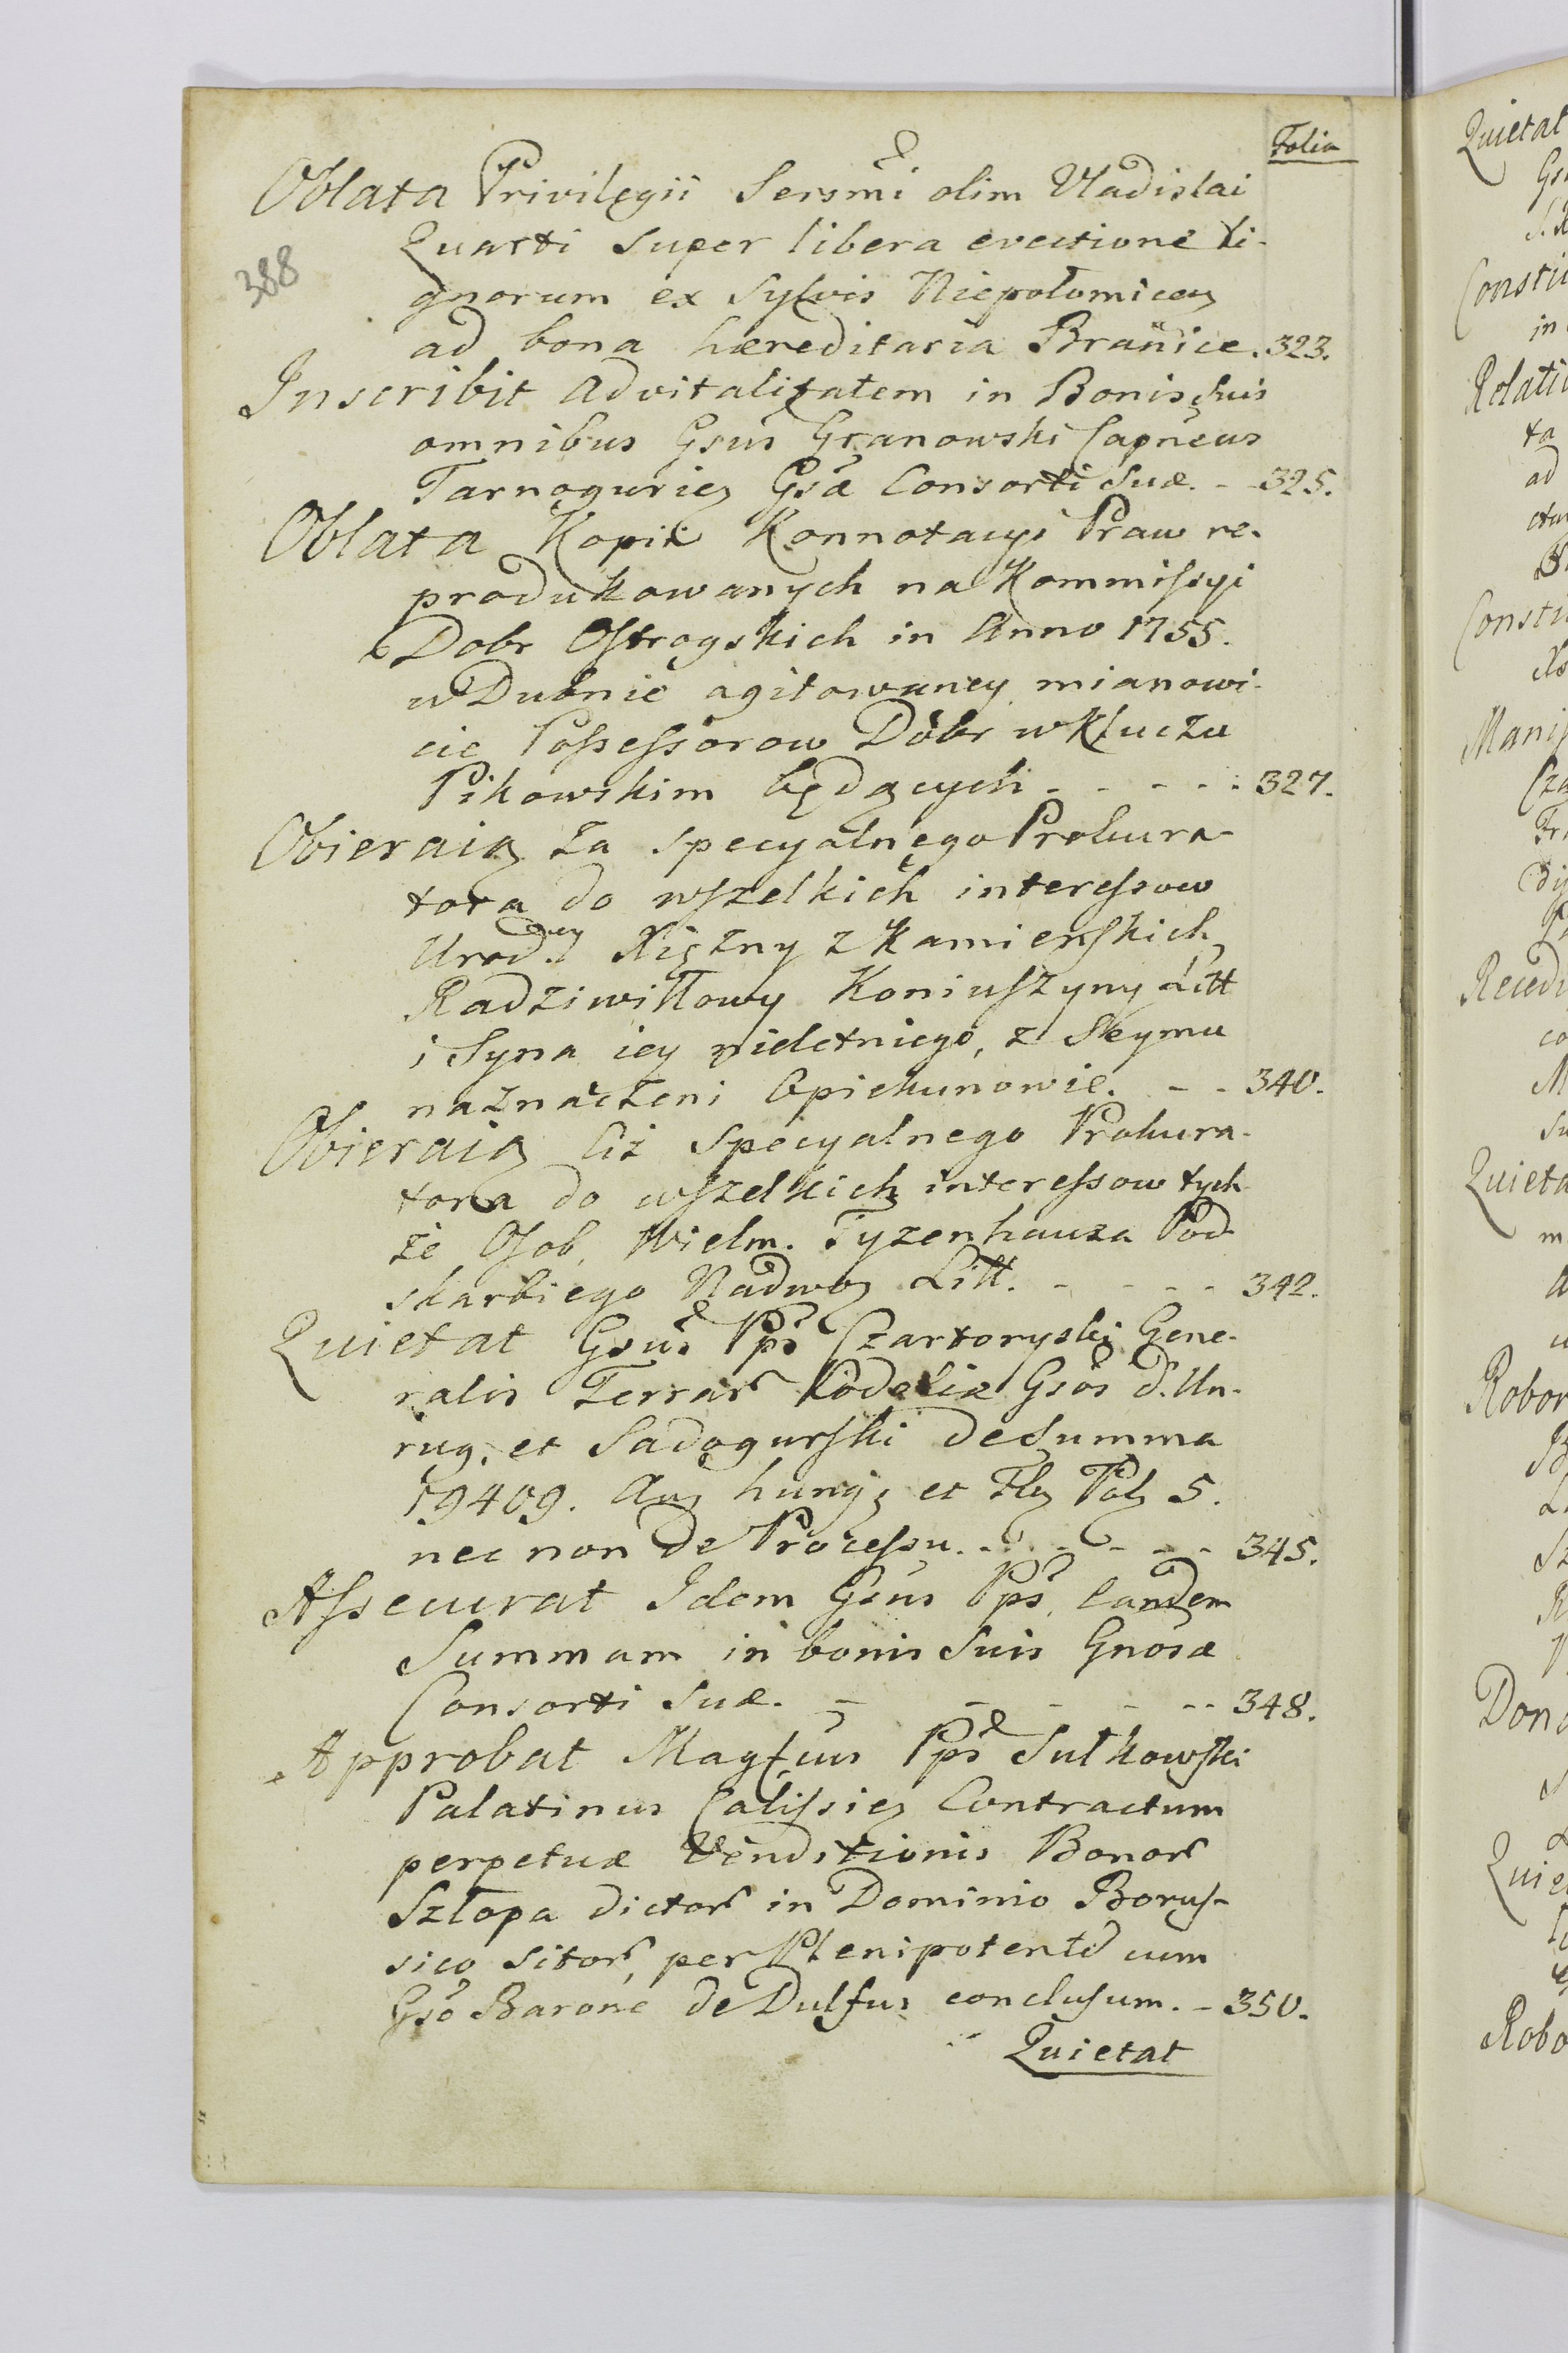 Folia
Oblata Privilegii Sersmi olim Vladislai
Quarti super libera evectione li-
388
gnorum ex Sylvis Niepołomicen
ad bona hæreditaria Branice. 323.
Inscribit Advitalitatem in Bonis suis
omnibus Gsus Granowski Capneus
Tarnogurien Gsæ Consorti suæ. - 325.
Oblata Kopii Konnotacyi Praw re-
produkowanych na Kommissyi
Dobr Ostrogskich in Anno 1755.
w Dubnie agitowaney mianowi-
cie Possessorow Dobr w Kluczu
Pikowskim będących - - - - 327.
Obieraią za specyalnego Prokura-
tora do wszelkich interessow
Urod. Xiężny z Kamienskich
Radziwiłłowy Koniuszyny Litt
i Syna iey nieletniego, z Seymu
naznaczeni Opiekunowie. - - 340.
Obieraią ciż specyalnego Prokura-
tora do wszelkich interessow tych
że Osob, Wielm. Tyzenhauza Pod
skarbiego Nadwo Litt. - - - - 342.
Quietat Gsus Pps Czartoryski Gene-
ralis Terrar Podoliæ Gsos d. Un-
rug, et Sadogurski de summa
19409. Au hung et Fl Pol 5.
nec non de Processu. - - - - - 345.
Assecurat Idem Gsus Pps. eandem
Summam in bonis suis Gnosæ
Consorti suæ. - - - - - 348.
Approbat Magfcus Pps Sułkowski
Palatinus Calissien Contractum
perpetuæ Venditionis Bonor
Szłopa dictor in Dominio Borus-
sico sitor, per Plenipotent cum
Gso Barone de Dulfus conclusum. - 350.
Quietat